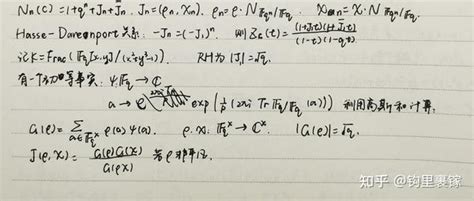 Nₙ(C) = 1+qⁿ+Jₙ+J̄ₙ. Jₙ=(ρₙ, χₙ). ρₙ=ρ∘N_{𝔽qⁿ/𝔽q} χₙ=χ∘N_{𝔽qⁿ/𝔽q}.
Hasse-Davenport关系: -Jₙ=(-J₁)ⁿ. 则Z_C(t)=(1+J₁t)(1+J̄₁t)/(1-t)(1-qt)
记K=Frac(𝔽q[x,y]/(x²+y³-1)). RH为|J|=√q.
有一个初等事实: ψ:𝔽q→ℂ
a→exp(1/p(2πi Tr 𝔽q/𝔽p(a))) 利用高斯和计算.
G(ρ)=∑_{a∈𝔽q^×} ρ(a)ψ(a). ρ.χ:𝔽q^×→ℂ^×. |G(ρ)|=√q.
J(ρ,χ)=G(ρ)G(χ)/G(ρχ) 若ρ非平凡.
知乎 @钩里裹镓